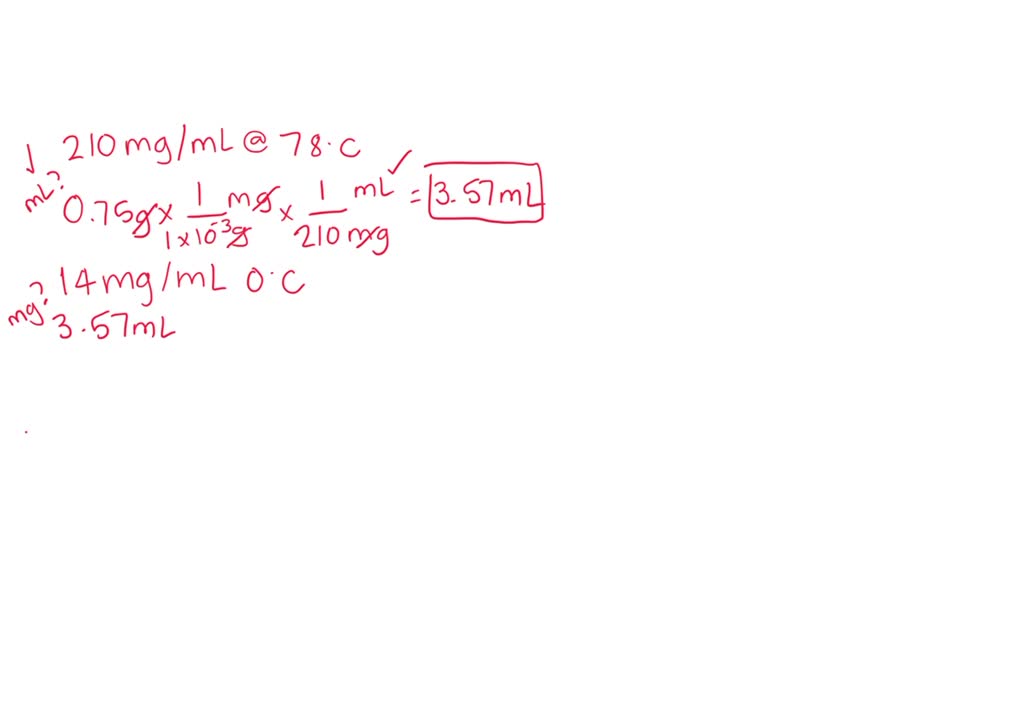 ↓ 210 mg/mL @ 78°C
mL? 0.75g × 1 mg / 1×10⁻³g × 1 mL / 210 mg ✓ = 3.57mL
mg? 14mg/mL 0°C
3.57mL